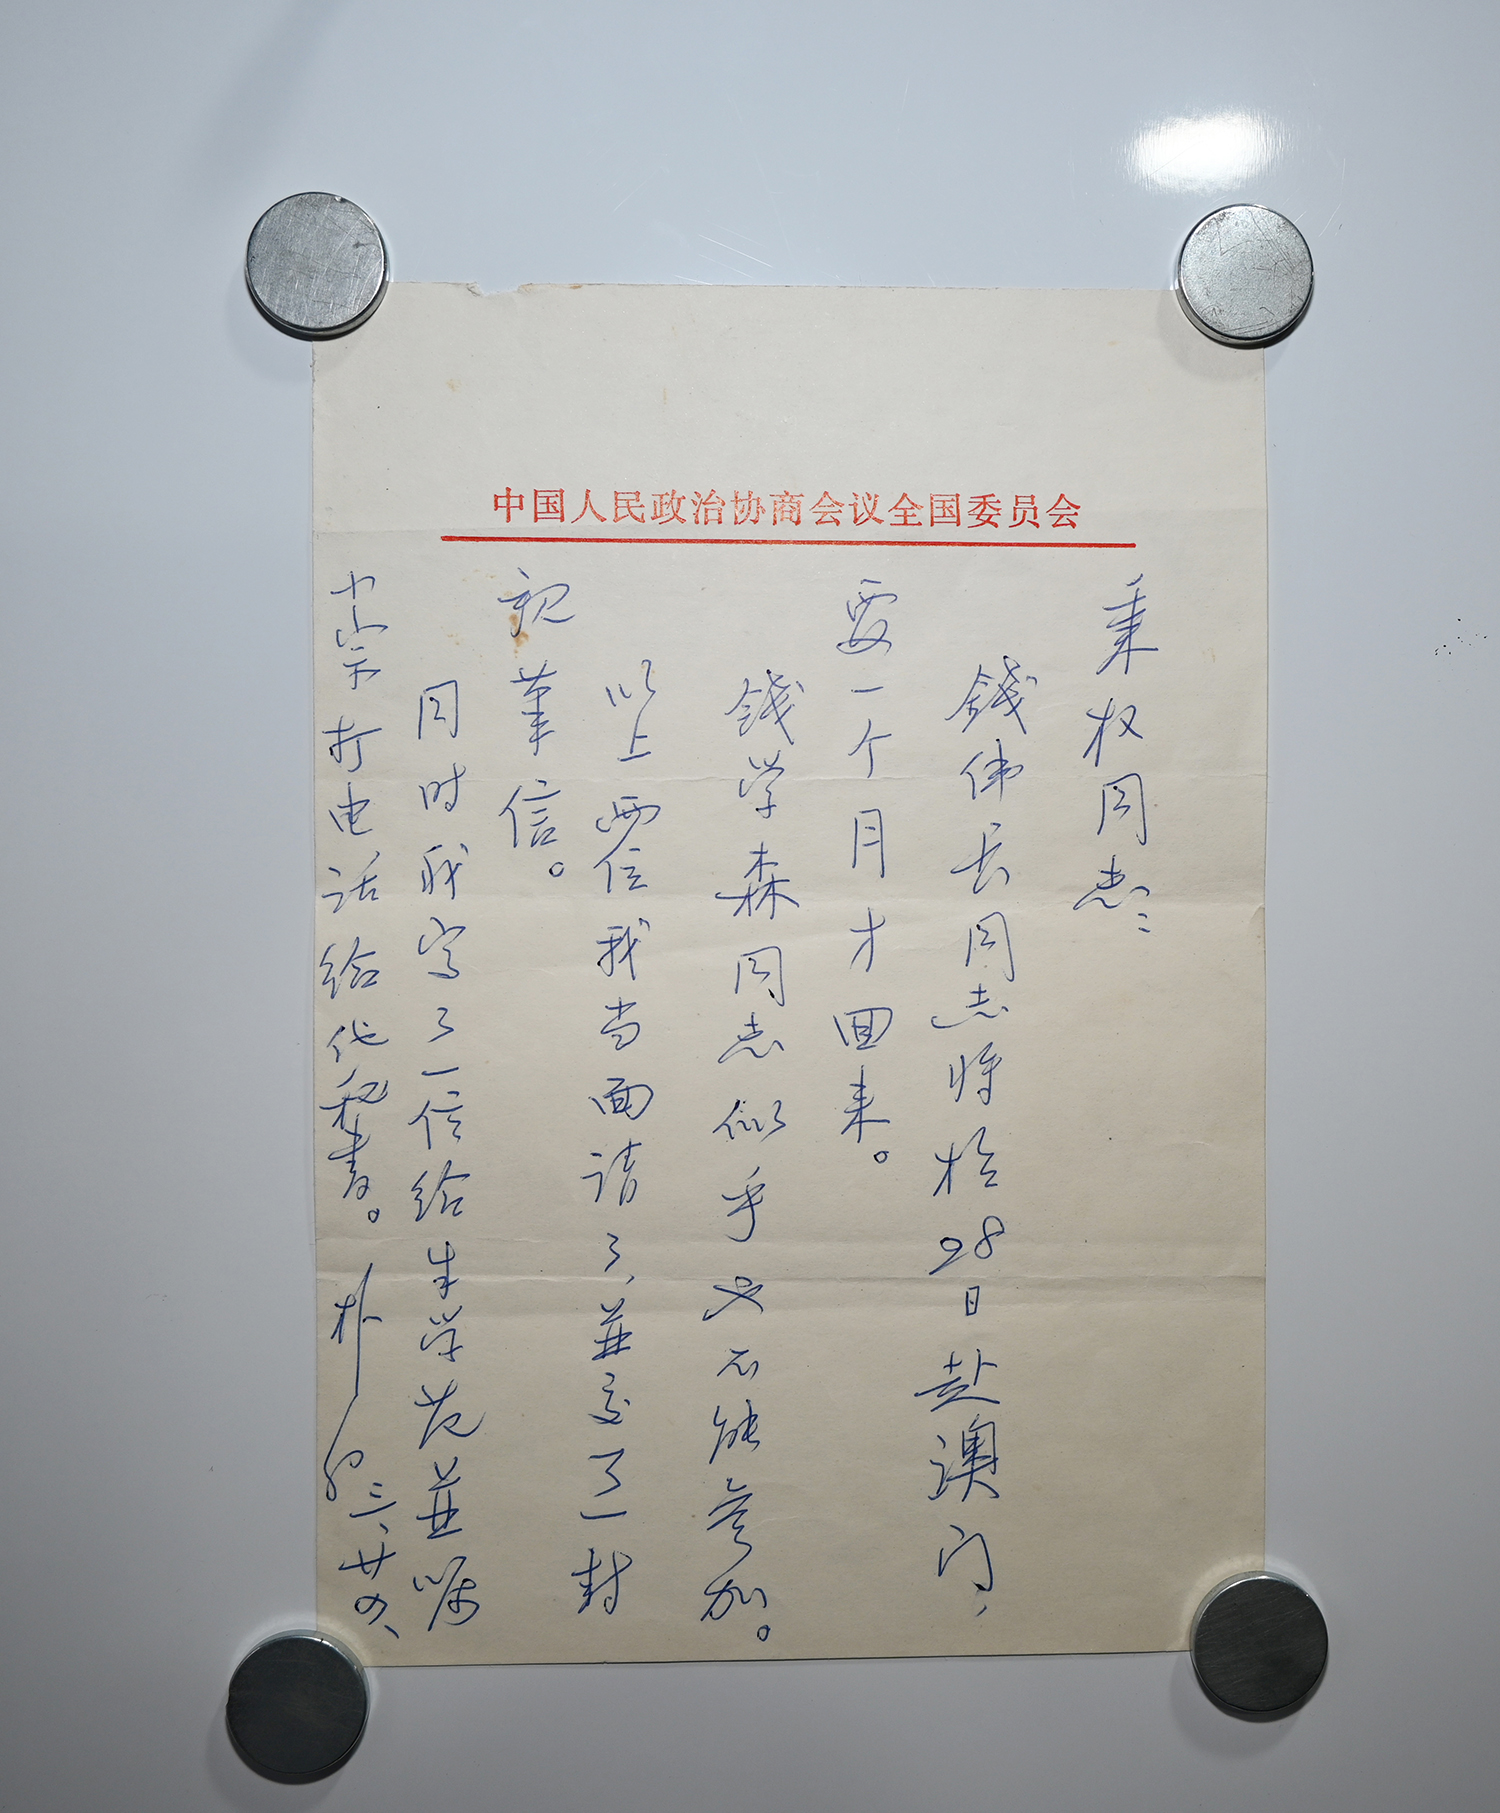 中国人民政治协商会议全国委员会
秉权同志：
钱伟长同志将於28日赴澳门，
要一个月才回来。
钱学森同志似乎也不能参加。
以上两位我当面请了，並交了一封
亲笔信。
同时我写了一信给朱学范並嘱
小宗打电话给他秘书。
朴初 三、廿四、